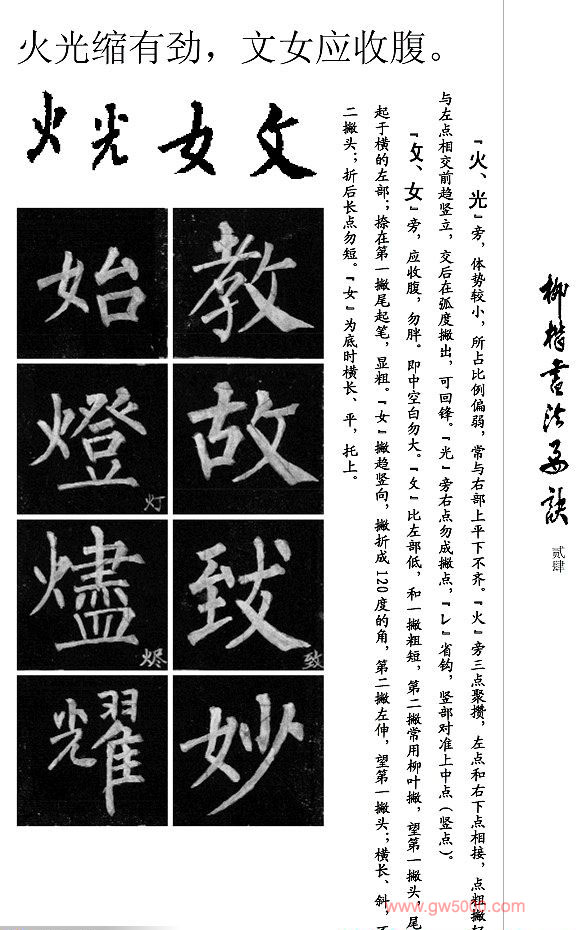 火光缩有劲，文女应收腹。
火 光 女 攵
始 教
燈 灯 故
燼 烬 致 致
耀 妙
『火、光』旁，体势较小，所占比例偏弱，常与右部上平下不齐。『火』旁三点聚攒，左点和右下点相接，点粗撇
与左点相交前趋竖立，交后在弧度撇出，可回锋。『光』旁右点勿成撇点，『乚』省钩，竖部对准上中点（竖点）。
『攵、女』旁，应收腹，勿胖。即中空白勿大。『攵』比左部低，和一撇粗短，第二撇常用柳叶撇，望第一撇头，尾
起于横的左部；捺在第一撇尾起笔，显粗。『女』撇趋竖向，撇折成120度的角，第二撇左伸，望第一撇头；横长、斜，
二撇头；折后长点勿短。『女』为底时横长、平，托上。
柳楷书法要诀
贰肆